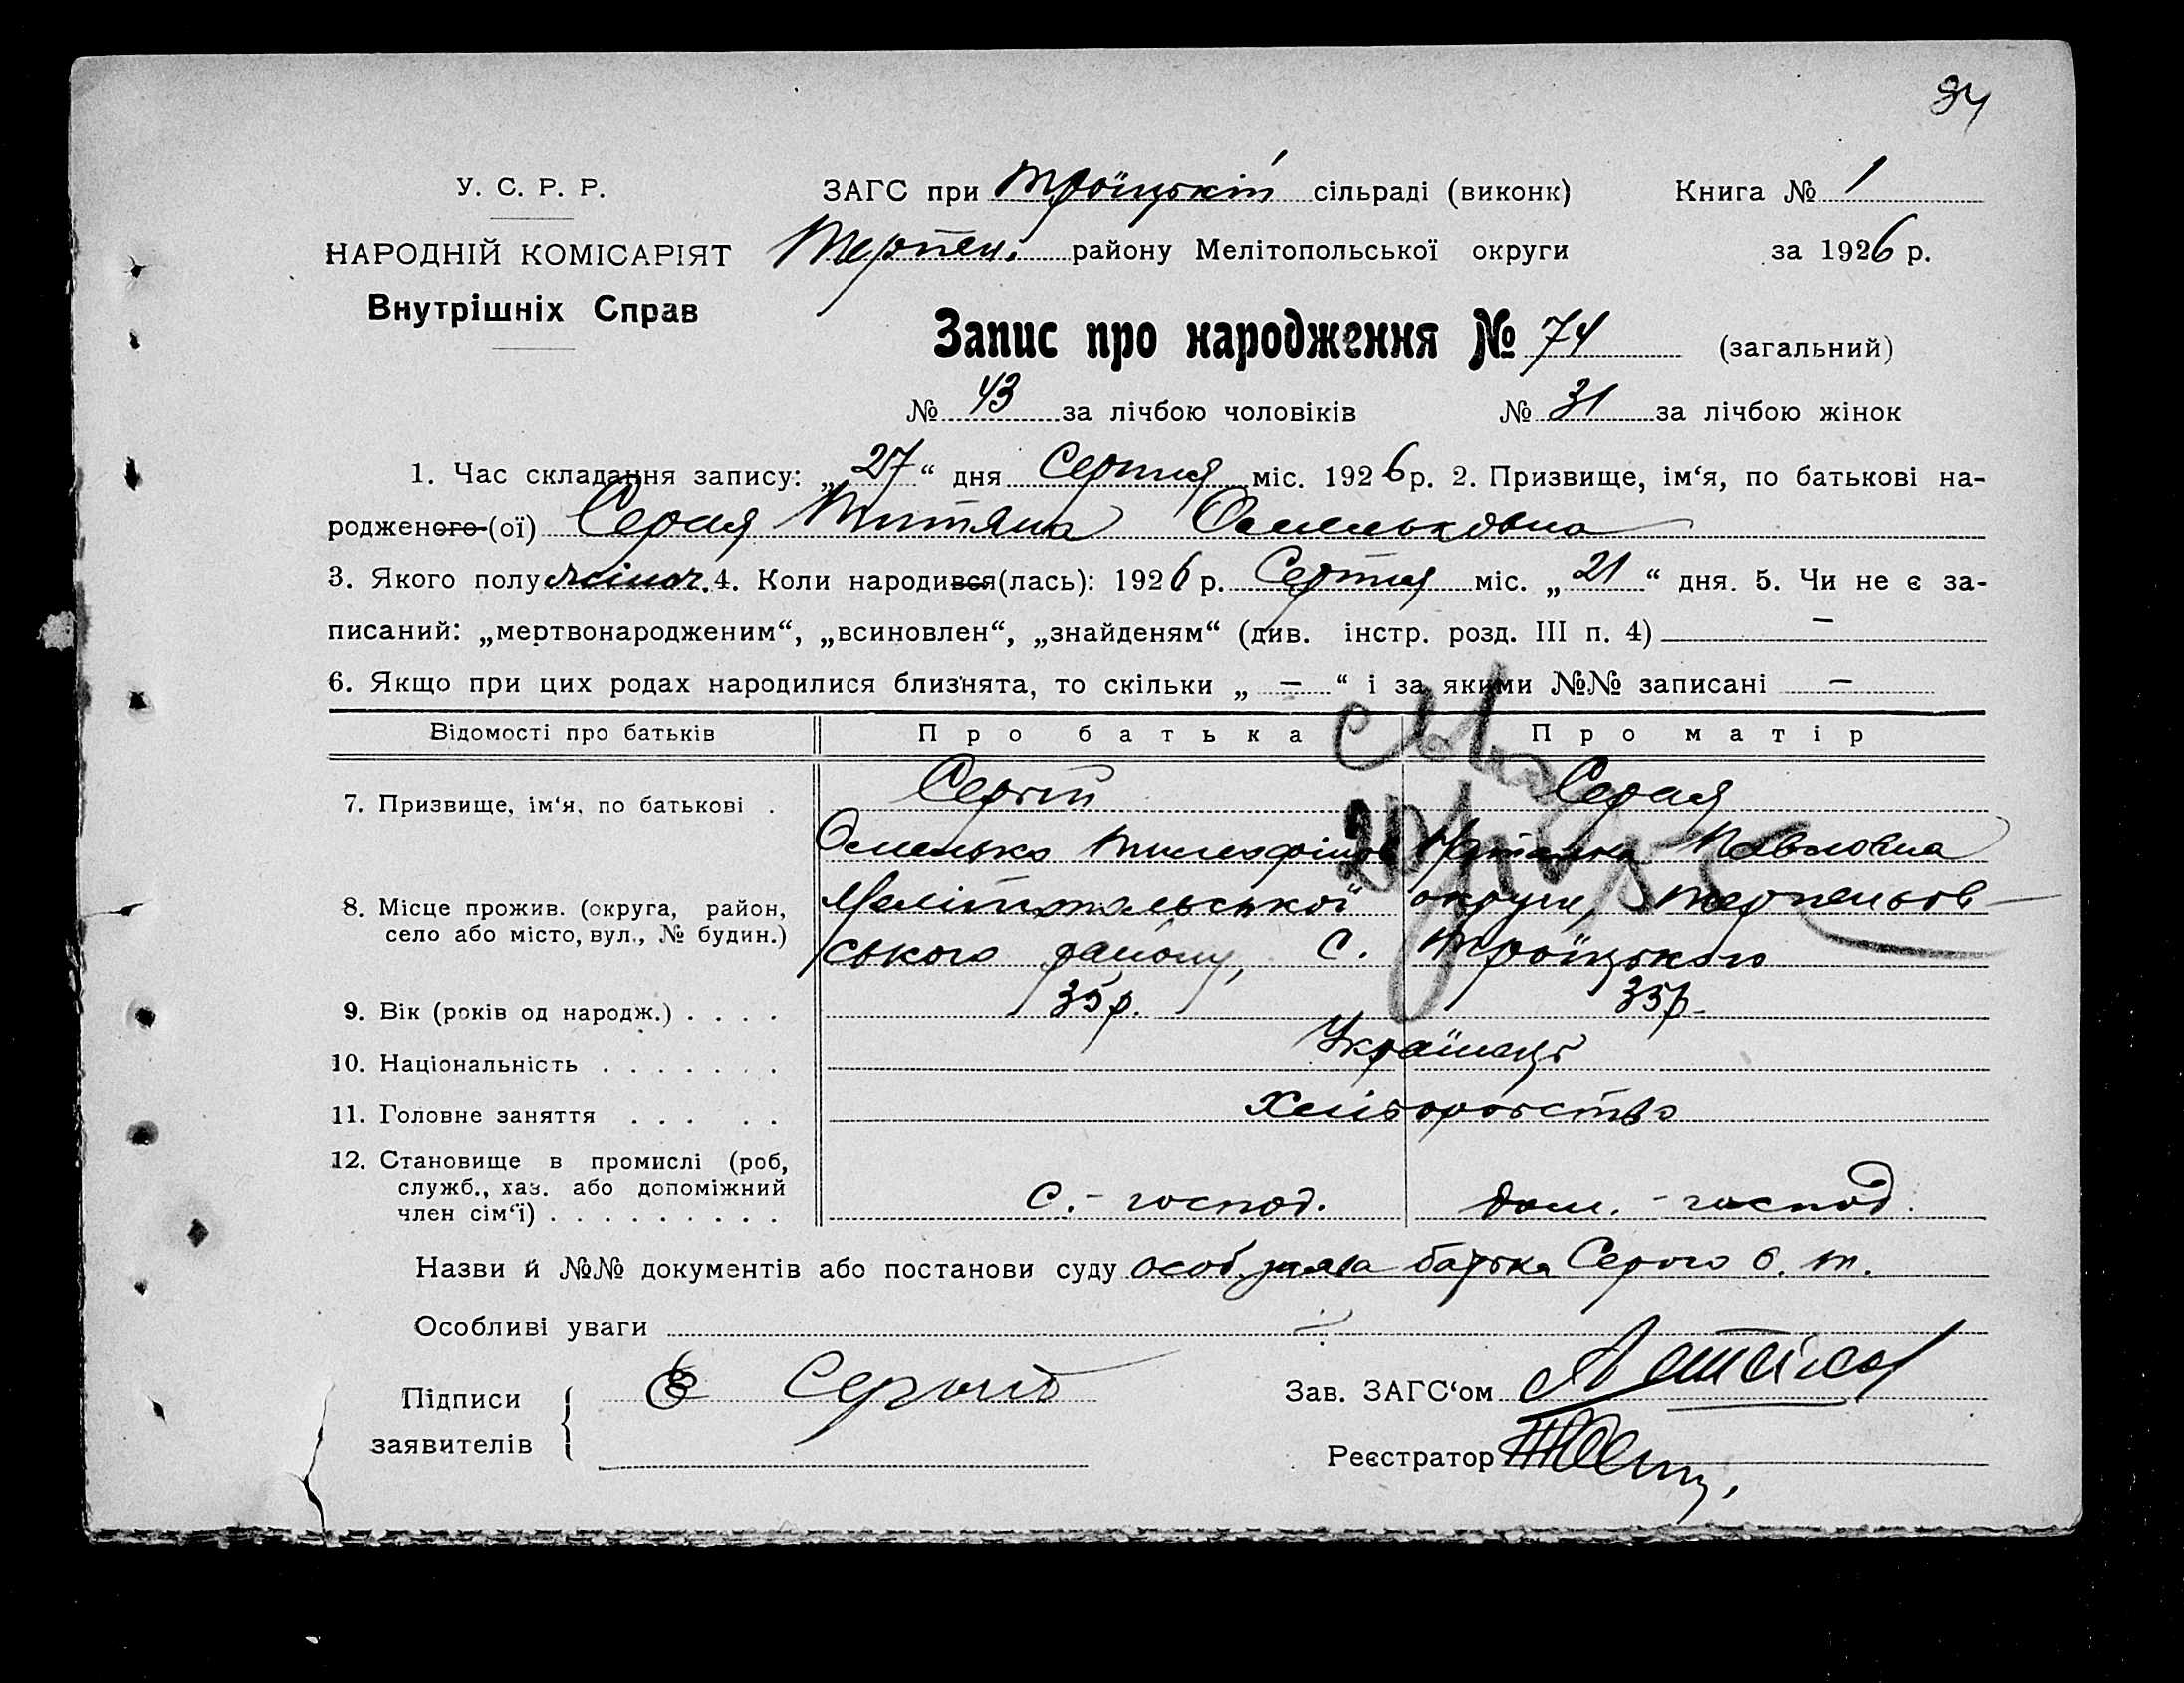 94
У. С. Р. Р.
НАРОДНІЙ КОМІСАРІЯТ
Внутрішніх Справ
ЗАГС при Троїцькій сільраді (виконк) Книга № 1
Терпен. району Мелітопольської округи за 1926 р.
Запис про народження № 74 (загальний)
№ 43 за лічбою чоловіків № 31 за лічбою жінок
1. Час складання запису: „27“ дня Серпня міс. 1926 р. 2. Призвище, ім‘я, по батькові на-
родженого (ої) Серая Титяна Омельковна
3. Якого полу жіноч. 4. Коли народився (лась): 1926 р. Серпня міс. „21“ дня. 5. Чи не є за-
писаний: „мертвонародженим“, „всиновлен“, „знайденям“ (див. інстр. розд. III п. 4) —
6. Якщо при цих родах народилися близ'нята, то скільки „ — “ і за якими №№ записані —
Відомості про батьків Про батька Про матір
7. Призвище, ім‘я, по батькові . Серий Серая
Омелько Павловна
8. Місце прожив. (округа, район, Мелітопольської округи, Терпеньов-
село або місто, вул., № будин.) ського району, С. Троїцького
9. Вік (років од народж.) . . . . 35 р. 35 р.
10. Національність . . . . . . . Українець
11. Головне заняття . . . . . Хліборобство
12. Становище в промислі (роб,
служб., хаз. або допоміжний
член сім‘ї) . . . . . . . . . С.-господ. дом.-господ.
Назви й №№ документів або постанови суду особ. заява батька Серого О. Т.
Особливі уваги
Підписи
заявителів
Серый
Зав. ЗАГС‘ом
Реєстратор